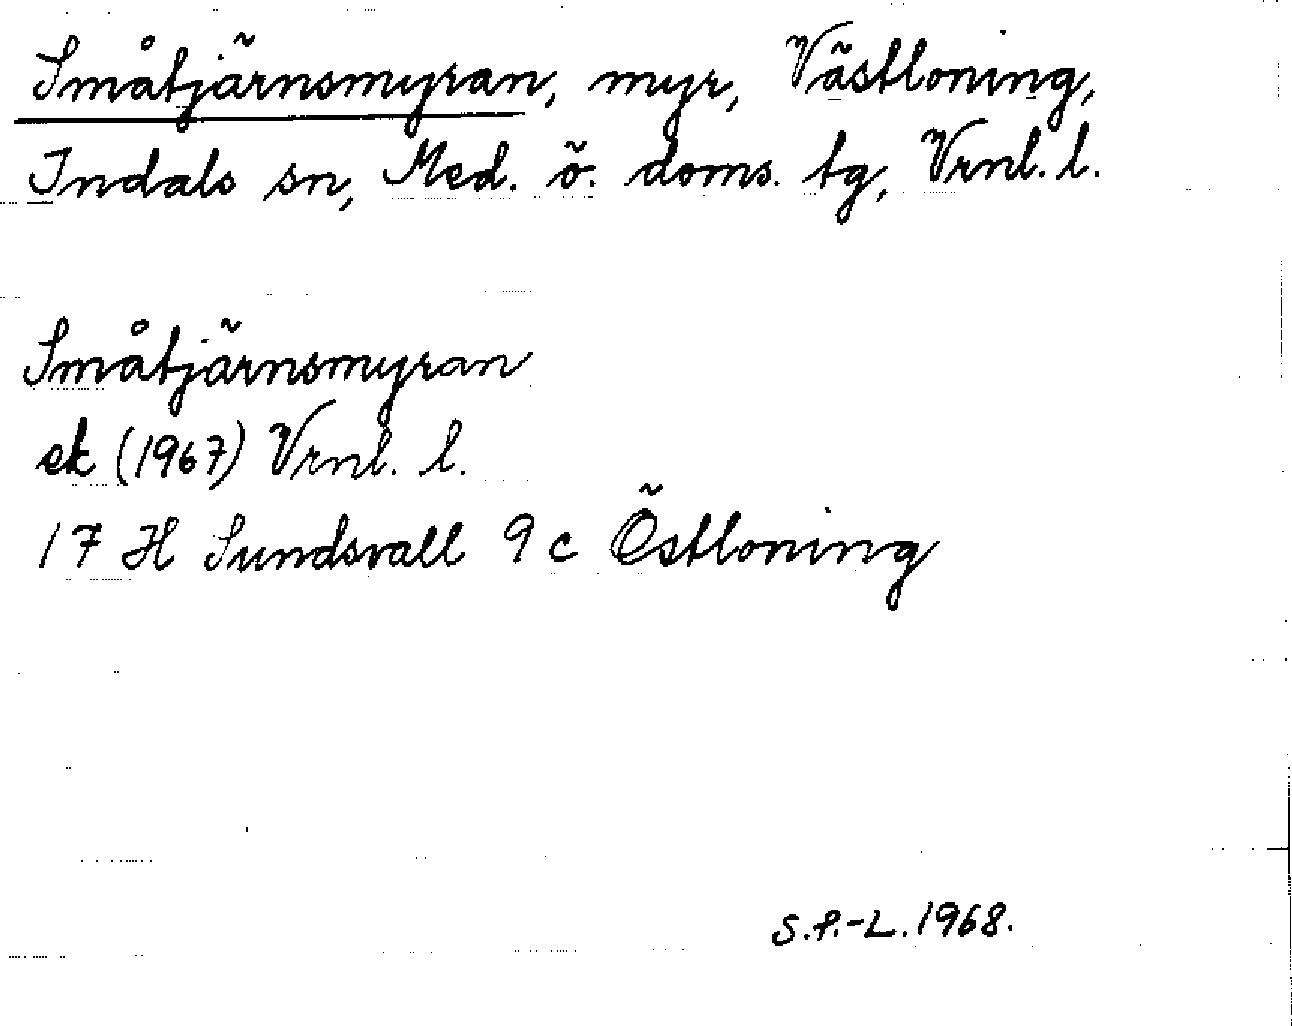 Småtjärnsmyran, myr, Västloning,
Indals sn, Med. ö. doms. tg, Vrnl. l.
Småtjärnsmyran
ek (1967) Vrnl. l.
17 H Sundsvall 9 c Östloning
S.P.-L. 1968.